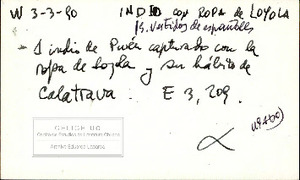 W 3-3-90 INDIO con ROPA de LOYOLA
13. vestidos de españoles
* 1 indio de Purén capturado con la
ropa de Loyola y su hábito de
Calatrava : E 3, 209.
(USADO)
CELICH UC
Centro de Estudios de Literatura Chilena
Archivo Eduardo Labarca